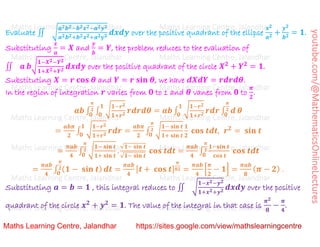 Evaluate ∬ √((a²b²−b²x²−a²y²)/(a²b²+b²x²+a²y²)) dxdy over the positive quadrant of the ellipse x²/a² + y²/b² = 1.
Substituting x/a = X and y/b = Y, the problem reduces to the evaluation of
∬ a b √((1−X²−Y²)/(1+X²+Y²)) dxdy over the positive quadrant of the circle X² + Y² = 1.
Substituting X = r cos θ and Y = r sin θ, we have dXdY = rdrdθ.
In the region of integration r varies from 0 to 1 and θ vanes from 0 to π/2.
ab ∫₀^(π/2) ∫₀¹ √((1−r²)/(1+r²)) rdrdθ = ab ∫₀¹ √((1−r²)/(1+r²)) rdr ∫₀^(π/2) dθ
= abπ/2 ∫₀¹ √((1−r²)/(1+r²)) rdr = abπ/2 ∫₀^(π/2) √((1−sin t)/(1+sin t)) ½ cos tdt, r² = sin t
= πab/4 ∫₀^(π/2) √((1−sin t)/(1+sin t)) · √((1−sin t)/(1−sin t)) cos tdt = πab/4 ∫₀^(π/2) (1−sin t)/(cos t) cos tdt
= πab/4 ∫₀^(π/2) (1 − sin t) dt = πab/4 [t + cos t]₀^(π/2) = πab/4 [π/2 − 1] = πab/8 (π − 2)
Substituting a = b = 1, this integral reduces to ∬ √((1−x²−y²)/(1+x²+y²)) dxdy over the positive
quadrant of the circle x² + y² = 1. The value of the integral in that case is π²/8 − π/4.
youtube.com/@MathematicsOnlineLectures
Maths Learning Centre, Jalandhar https://sites.google.com/view/mathslearningcentre